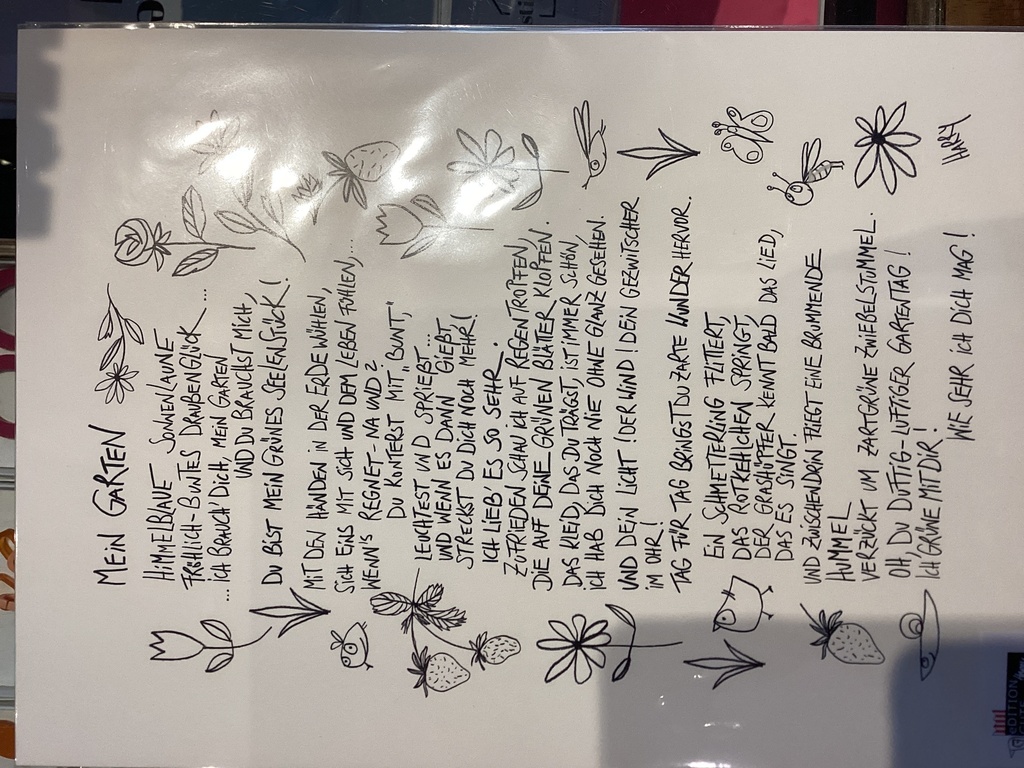 MEIN GARTEN
HIMMELBLAUE SONNENLAUNE
FRÖHLICH-BUNTES DRAUßENGLÜCK...
...ICH BRAUCH DICH, MEIN GARTEN
UND DU BRAUCHST MICH,
DU BIST MEIN GRÜNES SEELENSTÜCK!
MIT DEN HÄNDEN IN DER ERDE WÜHLEN,
SICH EINS MIT SICH UND DEM LEBEN FÜHLEN,...
WENN'S REGNET - NA UND?
DU KONTERST MIT „BUNT,"
LEUCHTEST UND SPRIEßT...
UND WENN ES DANN GIEßT
STRECKST DU DICH NOCH MEHR!
ICH LIEB ES SO SEHR.
ZUFRIEDEN SCHAU ICH AUF REGENTROPFEN,
DIE AUF DEINE GRÜNEN BLÄTTER KLOPFEN.
DAS KLEID, DAS DU TRÄGST, IST IMMER SCHÖN,
ICH HAB DICH NOCH NIE OHNE GLANZ GESEHEN.
UND DEIN LICHT! DER WIND! DEIN GEZWITSCHER
IM OHR!
TAG FÜR TAG BRINGST DU ZARTE WUNDER HERVOR.
EIN SCHMETTERLING FLITTERT,
DAS ROTKEHLCHEN SPRINGT,
DER GRASHÜPFER KENNT BALD DAS LIED,
DAS ES SINGT.
UND ZWISCHENDRIN FLIEGT EINE BRUMMENDE
HUMMEL
VERZÜCKT UM ZARTGRÜNE ZWIEBELSTUMMEL.
OH, DU DUFTIG-LUFTIGER GARTENTAG!
ICH GRÜNE MIT DIR!
WIE SEHR ICH DICH MAG!
EDITION